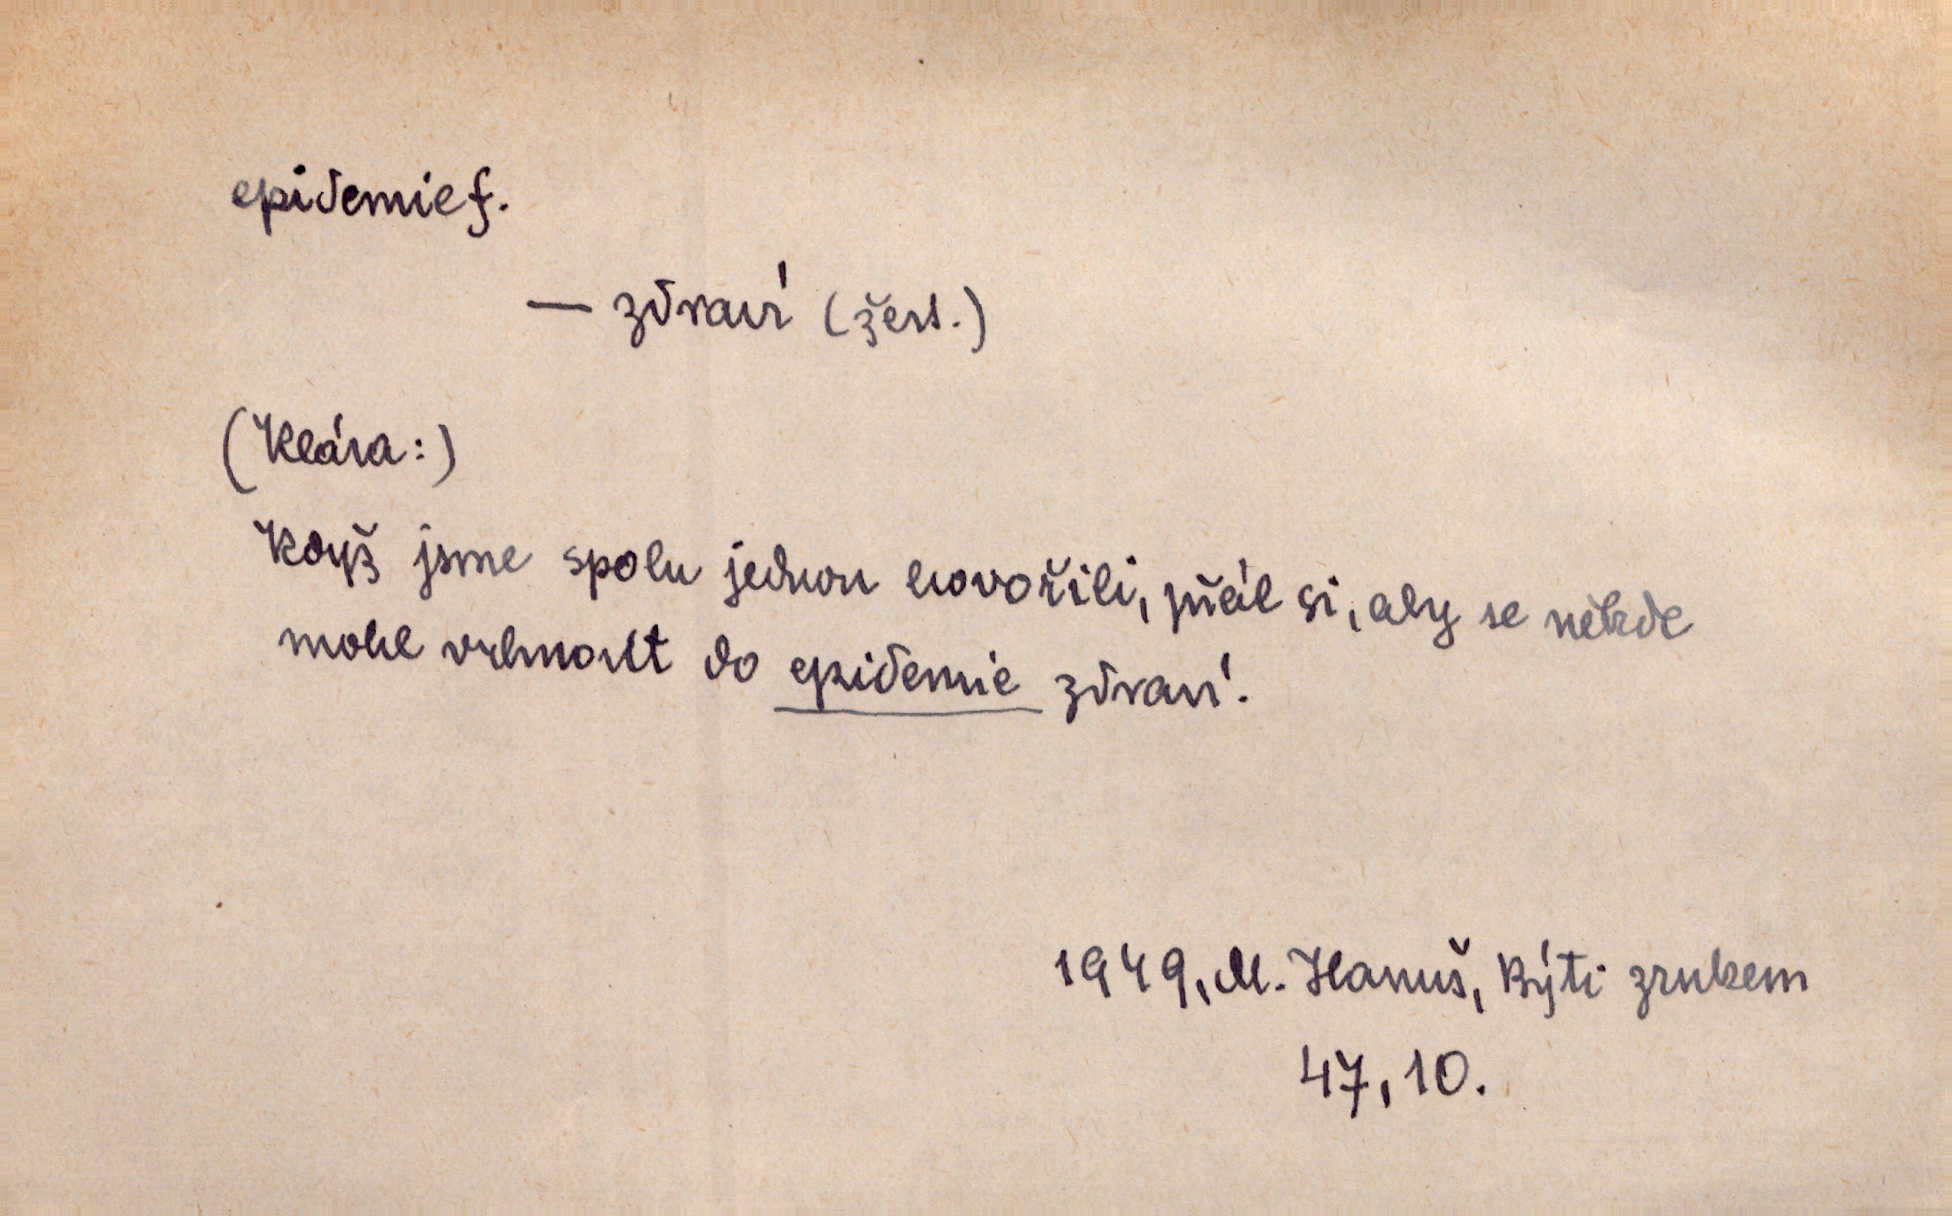 epidemie f.
— zdraví (žert.)
(Klára:)
Když jsme spolu jednou hovořili, přál si, aby se někde
mohl vrhnout do epidemie zdraví.
1949, M. Hanuš, Býti zrukem
47, 10.